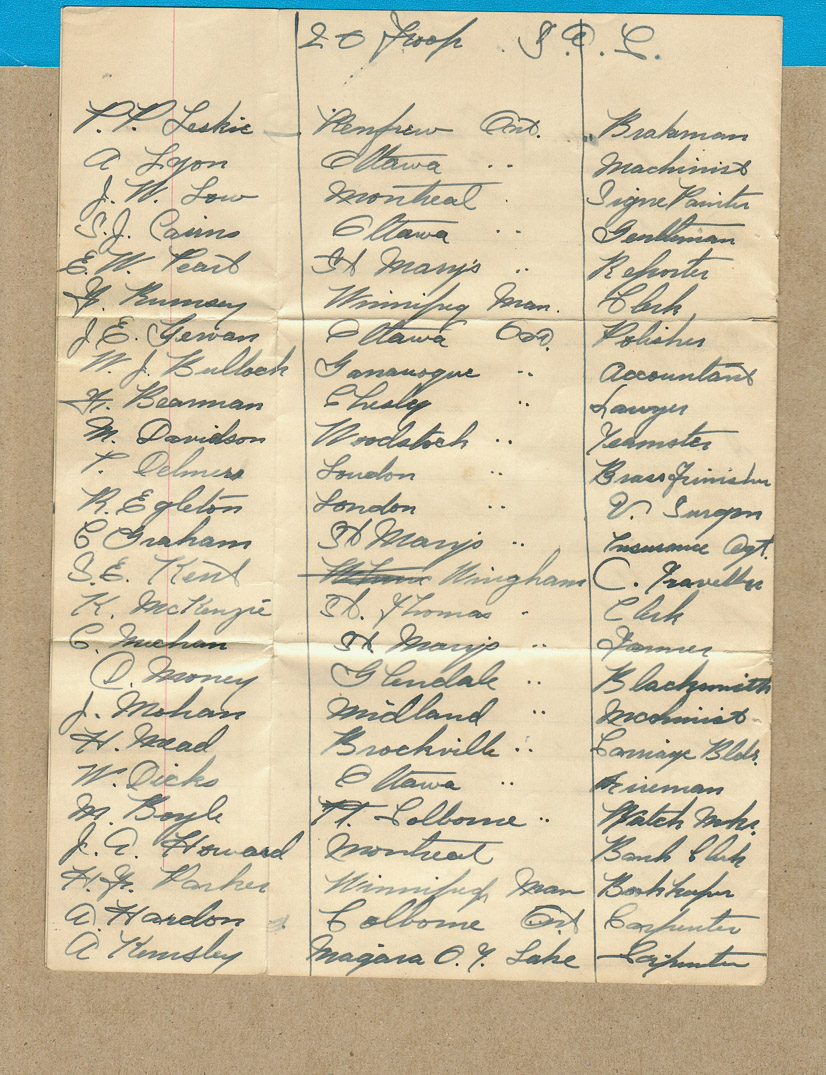 20 Troop S.A.C.
P. P. Leskie Renfrew Ont. Brakeman
A Lyon Ottawa " Machinist
J. W. Low Montreal . Signe Painter
S. J. Cairns Ottawa " Gentleman
E. W. Peart St Mary's " Reporter
Rumsey Winnipeg Man. Clerk
J. E. Gewan Ottawa Ont. Polisher
W. J. Bullock Gananoque " Accountant
H. Bearman Chesley " Lawyer
M. Davidson Woodstock " Teamster
P. Delmers London " Brass Finisher
R. Egleton London " V. Surgon
C Graham St Mary's " Insurance Agt.
S. E. Kent Wingham C. Traveller
K. McKenzie St. Thomas " Clerk
C. Meehan St Mary's " Farmer
D. Money Glendale " Blacksmith
J. Mohan Midland " Mcshinist
H. Mead Brockville " Carriage Bldr.
W. Dicks Ottawa " Fireman
M. Boyle Pt. Colborne " Watch Mkr.
J. A. Howard Montreal Bank Clerk
H. Parker Winnipeg Man Bookkeeper
A. Hardon Colborne Ont Carpenter
A Kemsley Niagara O. T. Lake Carpenter